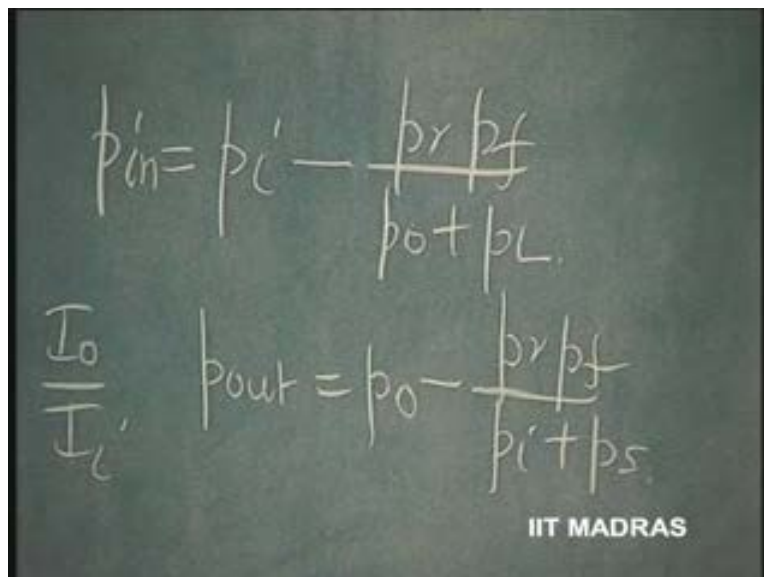 pin = pi − pr pf / po + pL.
Io / Ii pout = po − pr pf / pi + ps.
IIT MADRAS